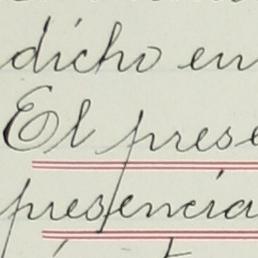 dicho en
El prese
presencia